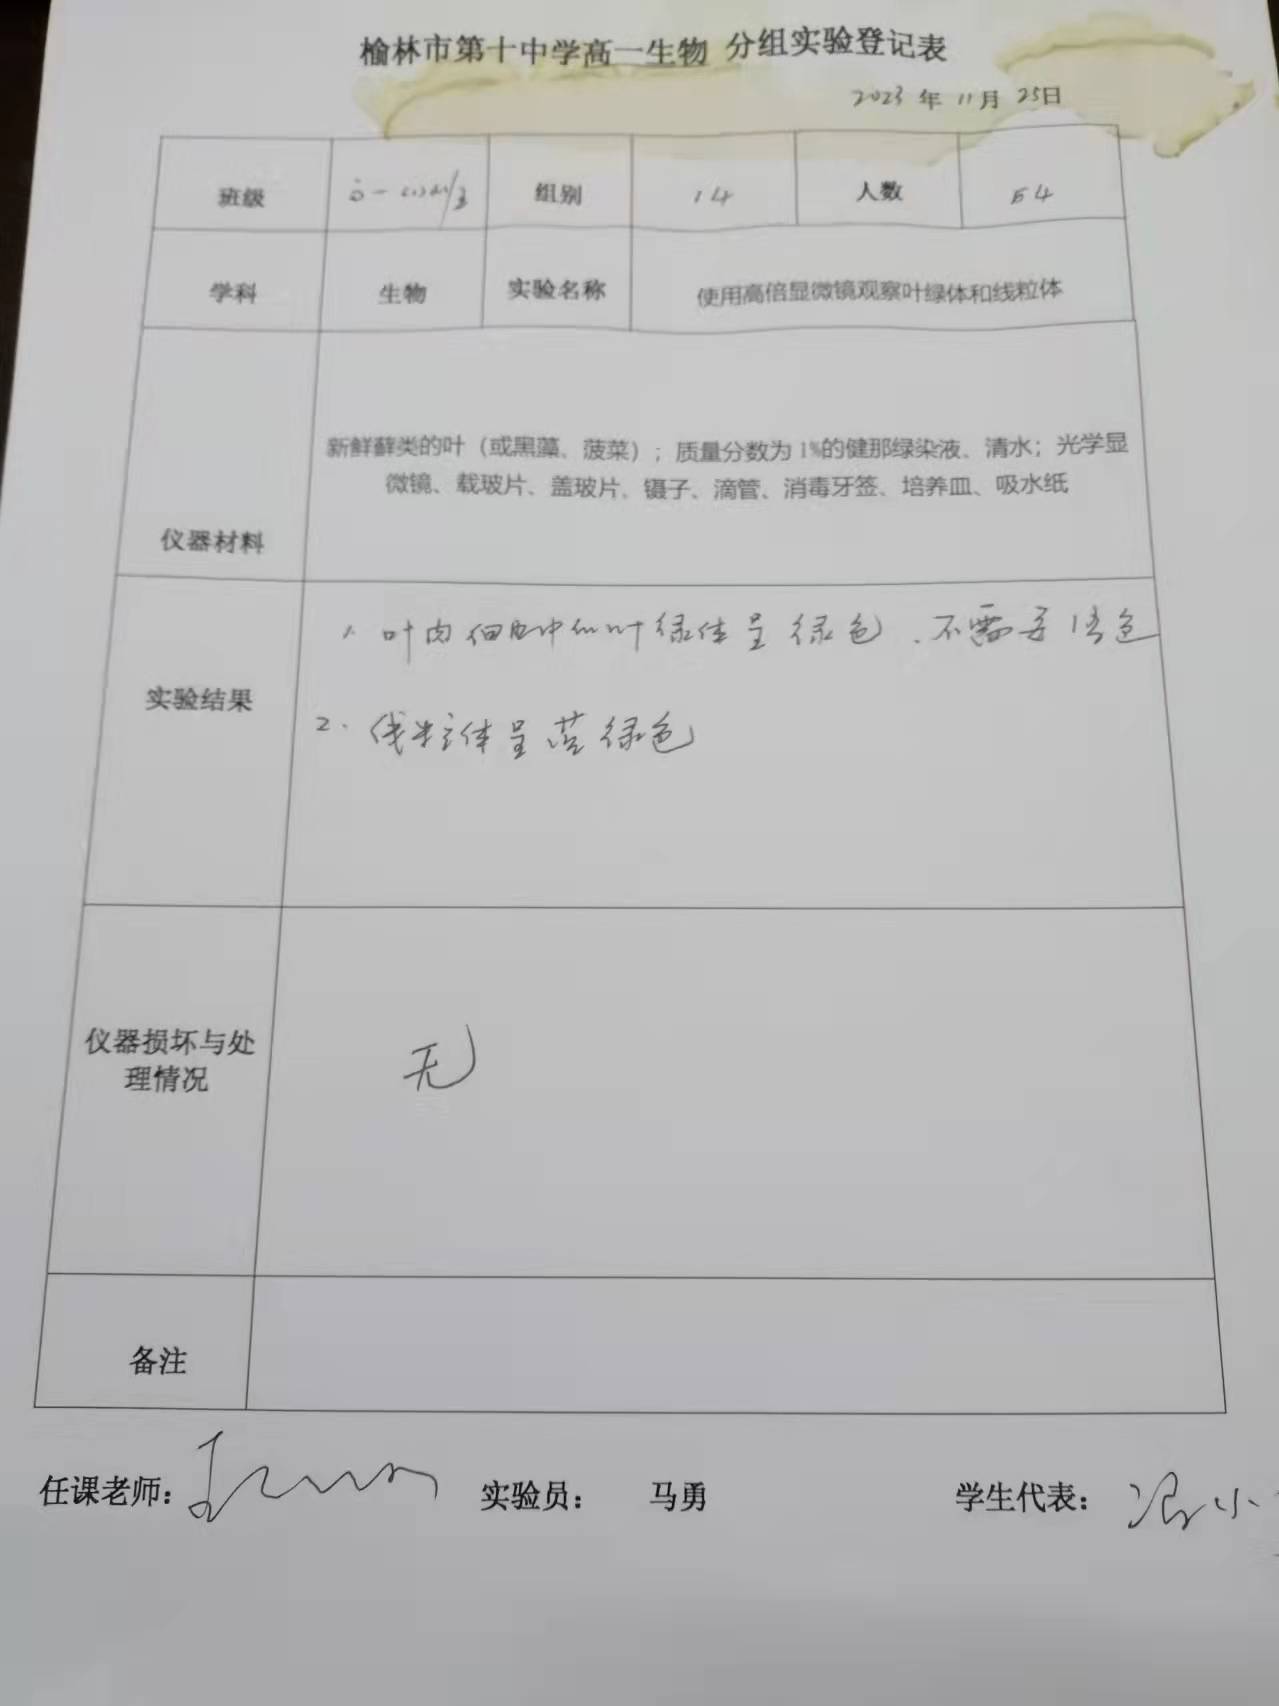 榆林市第十中学高一生物 分组实验登记表
2023 年 11 月 25日
班级 高一 组别 14 人数 54
学科 生物 实验名称 使用高倍显微镜观察叶绿体和线粒体
仪器材料
新鲜藓类的叶（或黑藻、菠菜）；质量分数为 1%的健那绿染液、清水；光学显
微镜、载玻片、盖玻片、镊子、滴管、消毒牙签、培养皿、吸水纸
实验结果
1. 叶肉细胞中的叶绿体呈绿色，不需要染色
2. 线粒体呈蓝绿色
仪器损坏与处
理情况
无
备注
任课老师： 实验员： 马勇 学生代表：